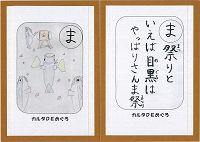 ま
カルタDEめぐろ
ま
祭りと
いえば目黒は
やっぱりさんま祭
カルタDEめぐろ